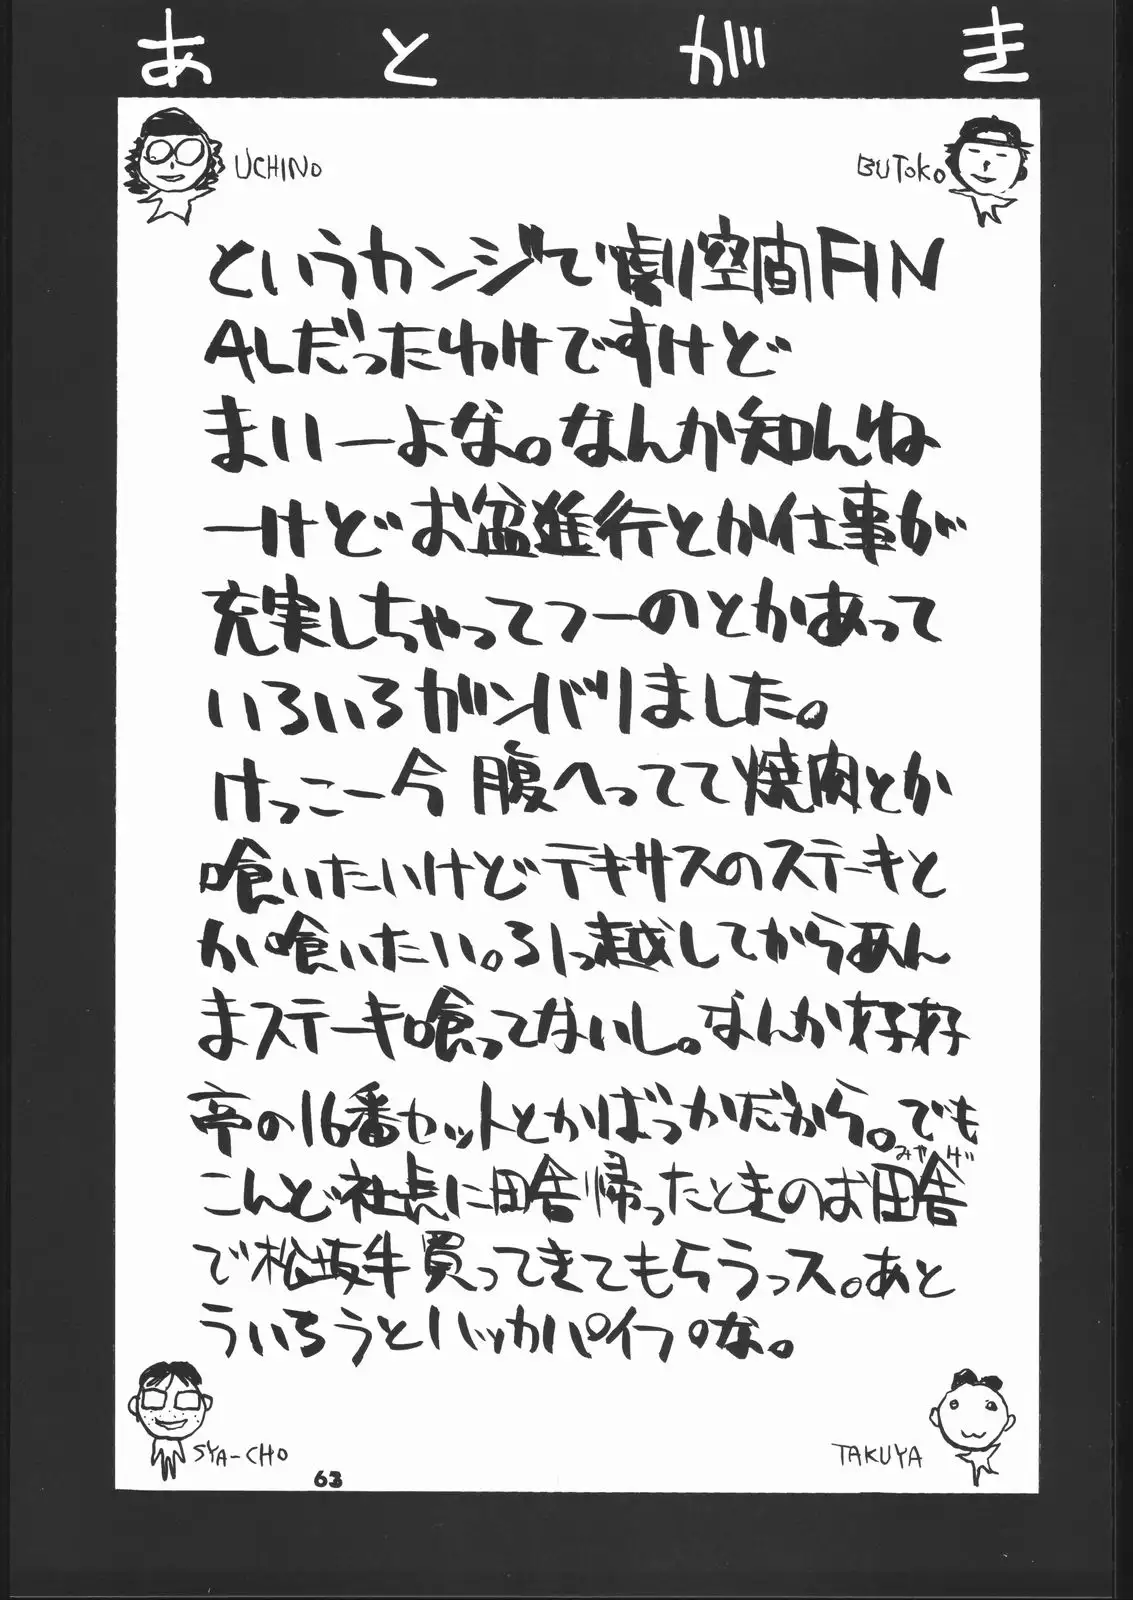 あとがき
UCHINO
BUTOKO
というカンジで劇空間FIN
ALだったわけですけど
まいーよな。なんか知んね
ーけどお盆進行とか仕事が
充実しちゃってつーのとかあって
いろいろガンバりました。
けっこー今腹へってて焼肉とか
喰いたいけどテキサスのステーキと
か喰いたい。引っ越ししてからあん
まステーキ喰ってないし。なんか好好
亭の16番セットとかばっかだから。でも
こんど社長に田舎帰ったときのお田舎
みやげ
で松坂牛買ってきてもらうっス。あと
ういろうとハッカパイプな。
SYA-CHO
TAKUYA
63